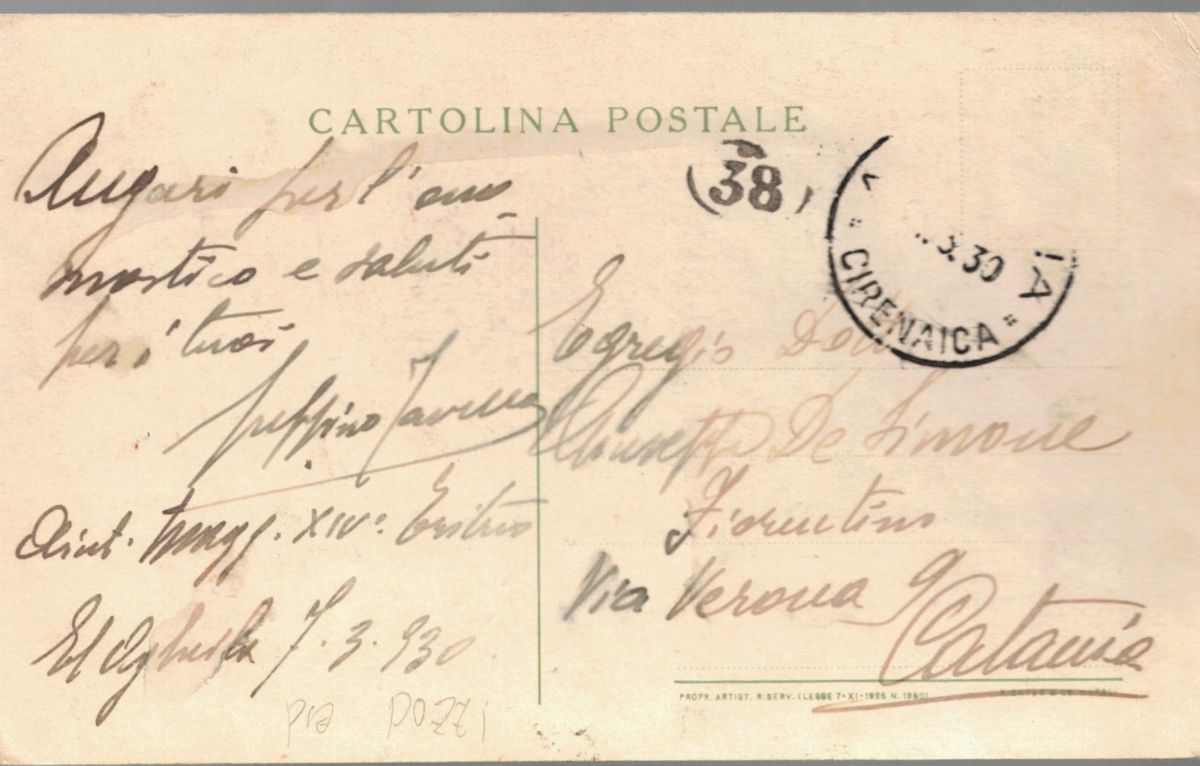 CARTOLINA POSTALE
Auguri per l'ono
mastico e saluti
per i tuoi
Peppino
Aiut. Magg. XIV° Eritreo
El Agheila 7.3.930
pia pozzi
38
.3.30
IA
" CIRENAICA "
Egregio Dott
De Simone
Fiorentino
Via Verona 9
Catania
PROPR. ARTIST. RISERV. (LEGGE 7-XI-1925 N. 1950)
RICHTER & C